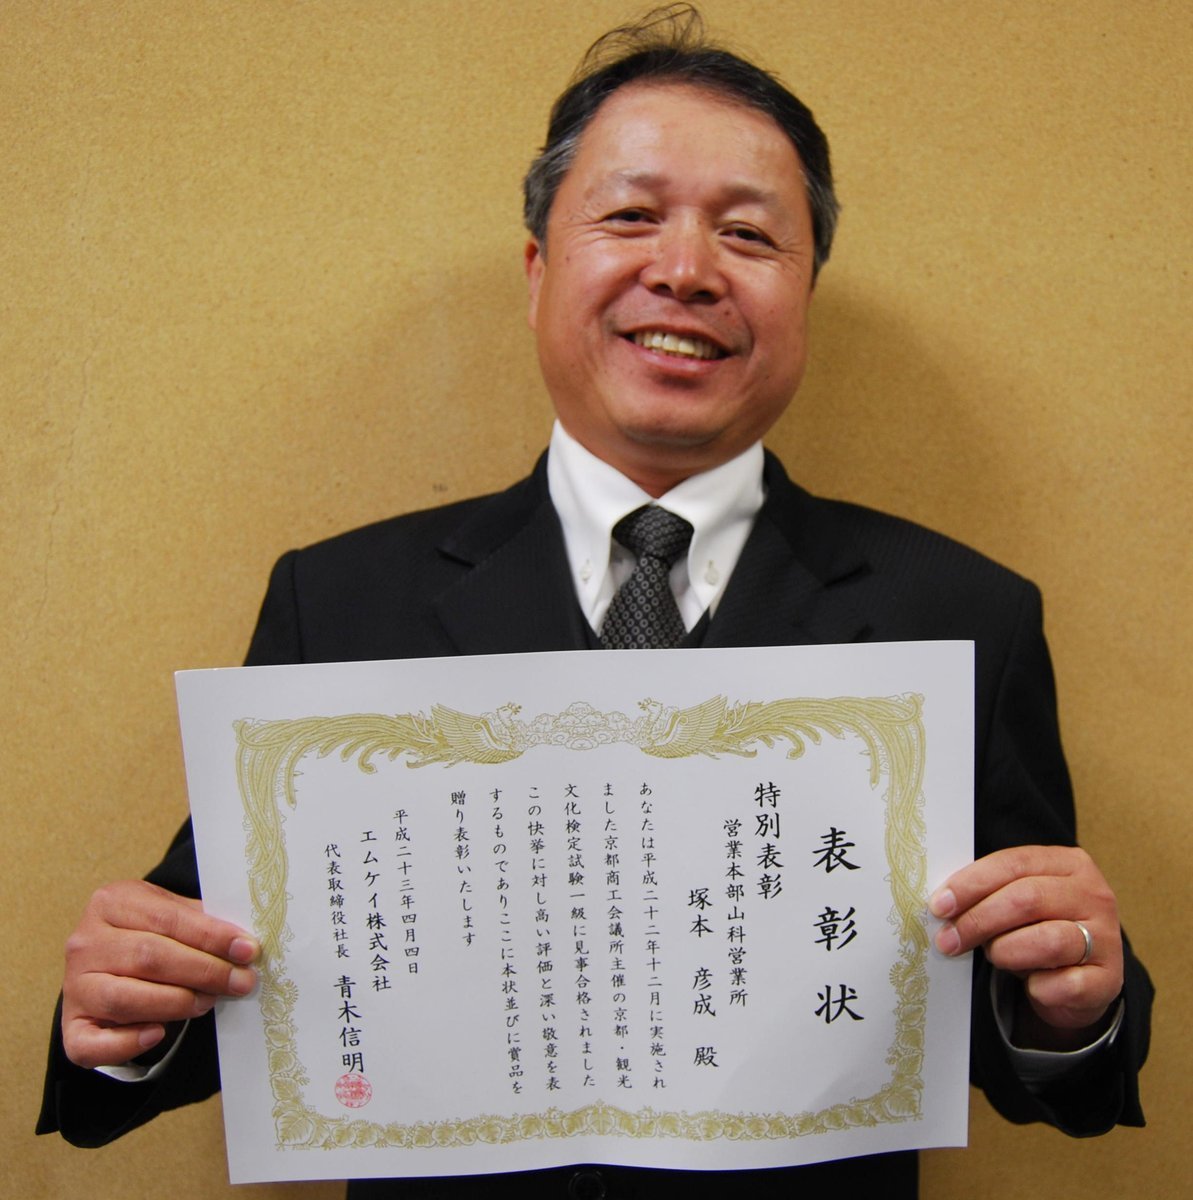 表彰状
特別表彰
営業本部山科営業所
塚本 彦成 殿
あなたは平成二十二年十二月に実施され
ました京都商工会議所主催の京都・観光
文化検定試験一級に見事合格されました
この快挙に対し高い評価と深い敬意を表
するものでありここに本状並びに賞品を
贈り表彰いたします
平成二十三年四月四日
エムケイ株式会社
代表取締役社長 青木信明